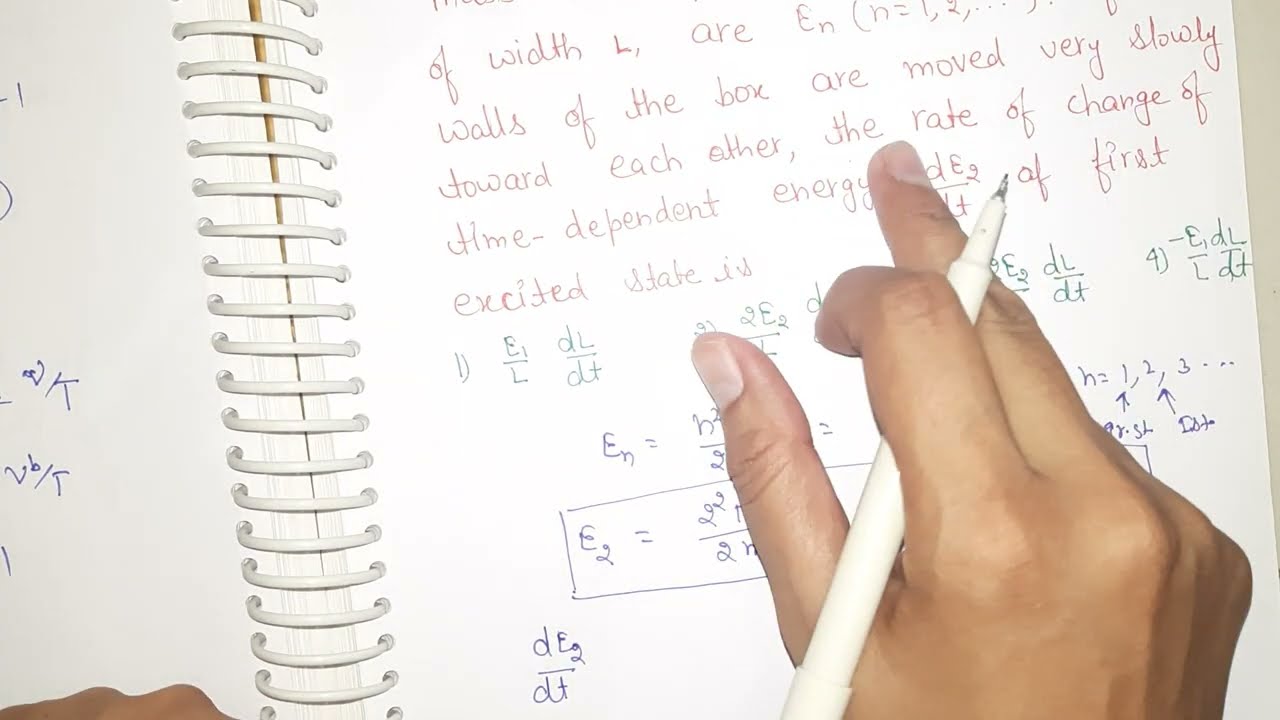 of width L, are En (n=1,2,...
walls of the box are moved very slowly
toward each other, the rate of change of
time-dependent energy dE2/dt of first
excited state is
1) E1/L dL/dt 2) 2E2/L 2E2 dL/dt 4) -E1/L dL/dt
n= 1, 2, 3 ...
En = n² =
E2 = 2²
dE2/dt
-1
/T
/T